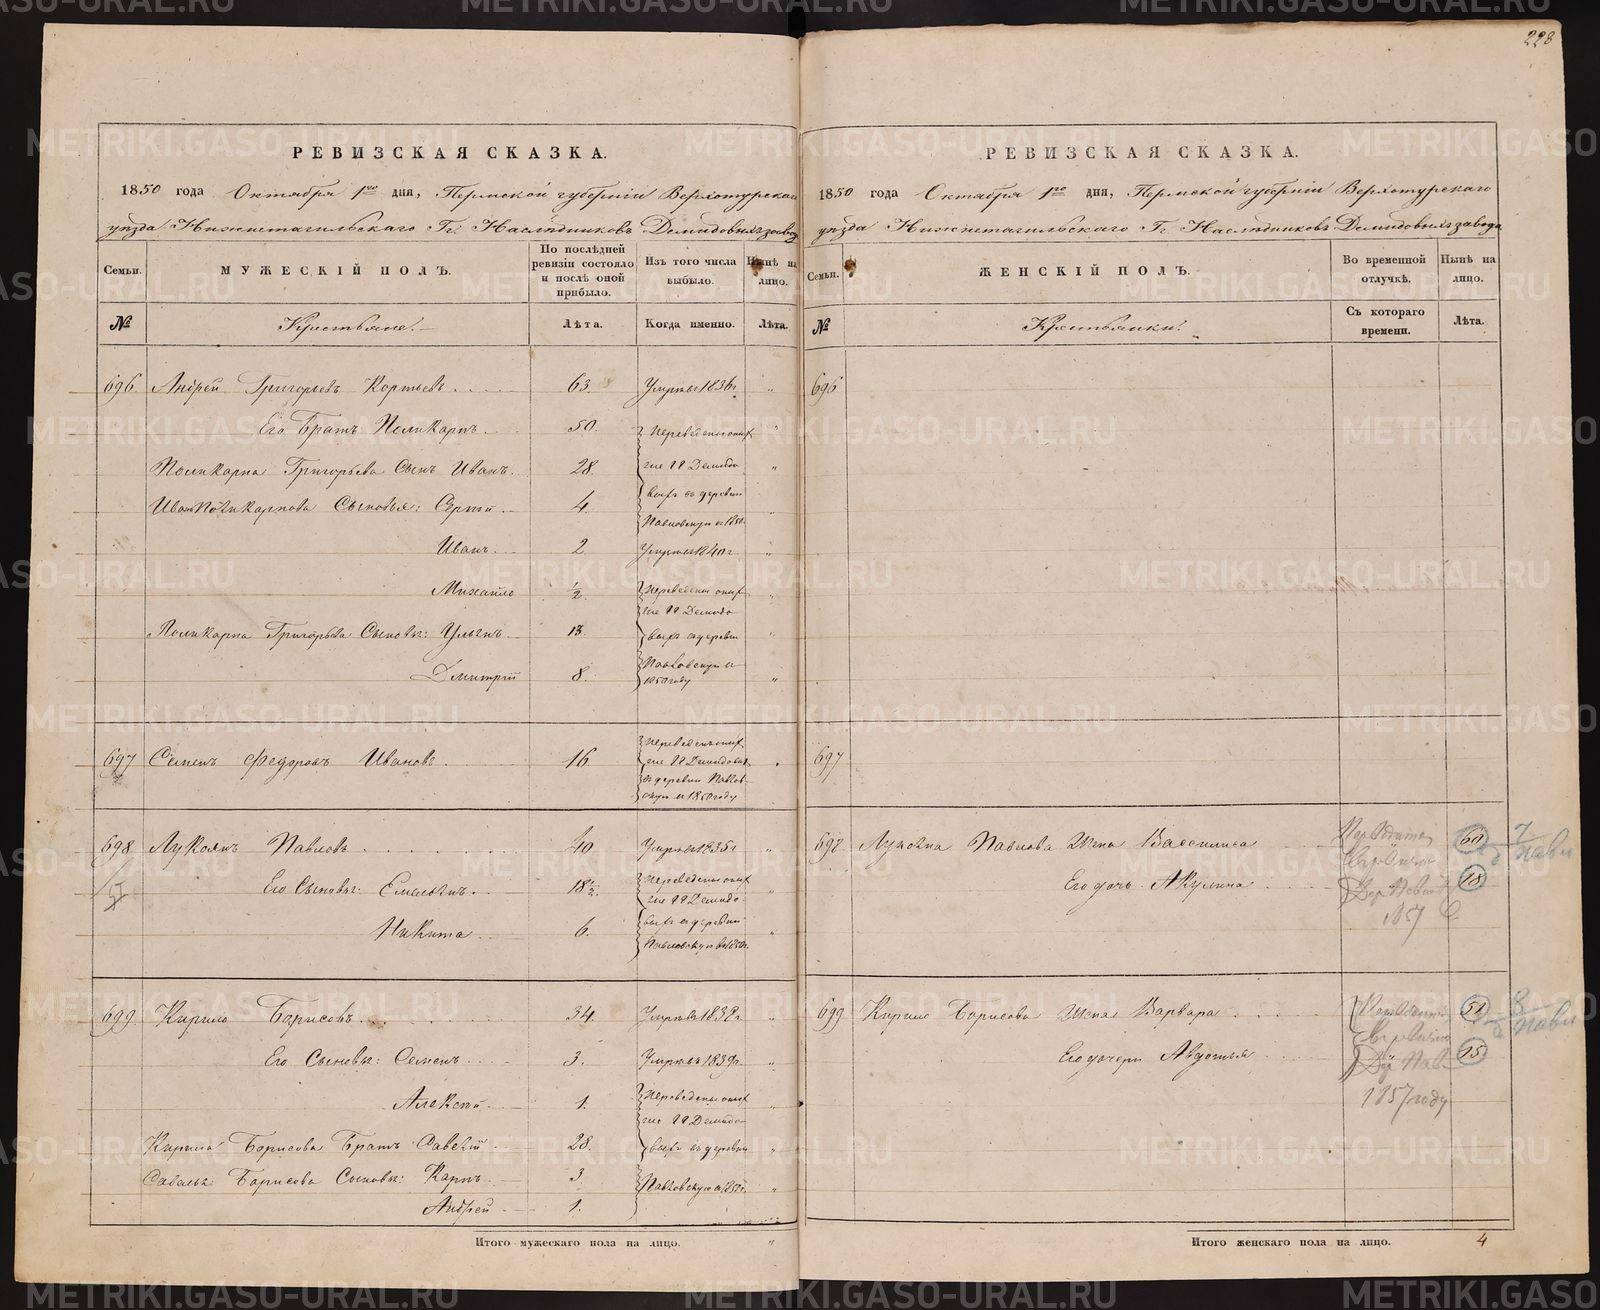 228
РЕВИЗСКАЯ СКАЗКА.
1850 года Октября 1го дня, Пермской губерніи Верхотурскаго
уѣзда Нижнетагильскаго Гг. Наслѣдниковъ Демидовыхъ завода
Семьи.
МУЖЕСКІЙ ПОЛЪ.
По послѣдней ревизіи состояло и послѣ оной прибыло.
Изъ того числа выбыло.
Нынѣ на лицо.
№
Крестьяне.
Лѣта.
Когда именно.
Лѣта.
696. Андрей Григорьевъ 63 Умеръ 1836 г. "
Его Братъ Поликарпъ. 50. переведены
Поликарпа Григорьева Сынъ Иванъ. 28. Демидо
Ивана Поликарпова Сыновья: Сергій. 4. выхъ въ деревню
Павловскую въ 1850 г.
Иванъ. 2 Умеръ 1840 г. "
Михаило ½. переведены
Демидо
Поликарпа Григорьева Сыновья: 13. выхъ въ деревню
Дмитрій 8. Павловскую въ
1850 году
697 Семенъ Федоровъ Ивановъ. 16
Демидовыхъ
въ деревню Павлов-
скую въ 1850 году
698 Лукоянъ Павловъ 40 Умеръ 1835 г. "
Его Сыновья: Емельянъ. 18½. переведены
Демидо-
Никита 6. выхъ въ деревню
Павловскую въ 1850 г.
699 Кирило Борисовъ. 34. Умеръ 1832 г. "
Его Сыновья: Семенъ 3. Умеръ 1839 г. "
Алексій. 1. переведены
Демидо-
Кирила Борисова Братъ Савелій 28. выхъ въ деревню
Савелья Борисова Сыновья: Карпъ. 3 Павловскую
Андрей 1.
Итого мужескаго пола на лицо. "
РЕВИЗСКАЯ СКАЗКА.
1850 года Октября 1го дня, Пермской губерніи Верхотурскаго
уѣзда Нижнетагильскаго Гг. Наслѣдниковъ Демидовыхъ завода
Семьи.
ЖЕНСКІЙ ПОЛЪ.
Во временной отлучкѣ.
Нынѣ на лицо.
№
Крестьянки.
Съ котораго времени.
Лѣта.
696
697
698 Лукояна Павлова Жена Василиса 60 7
Его дочь Акулина 18
1857
699 Кирила Борисова Жена Варвара 51 8
Его дочери Авдотья 15
1857 году
Итого женскаго пола на лицо. 4
METRIKI.GASO-URAL.RU